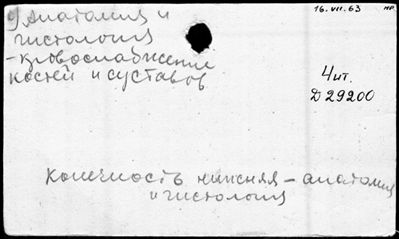 9 Анатомия и
гистология
- кровоснабжение
костей и суставов
16.VII.63
Чит.
Д 29200
Конечность нижняя - анатомия
и гистология